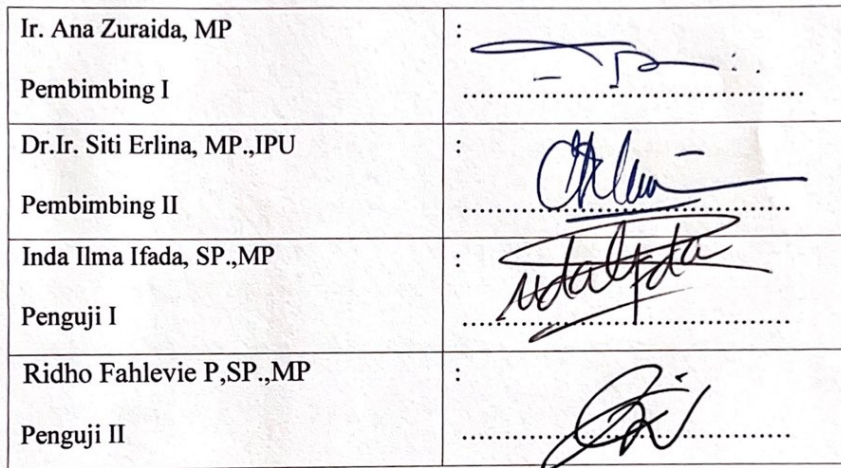 Ir. Ana Zuraida, MP
:
Pembimbing I
........................................
Dr.Ir. Siti Erlina, MP.,IPU
:
Pembimbing II
........................................
Inda Ilma Ifada, SP.,MP
:
Penguji I
........................................
Ridho Fahlevie P,SP.,MP
:
Penguji II
........................................